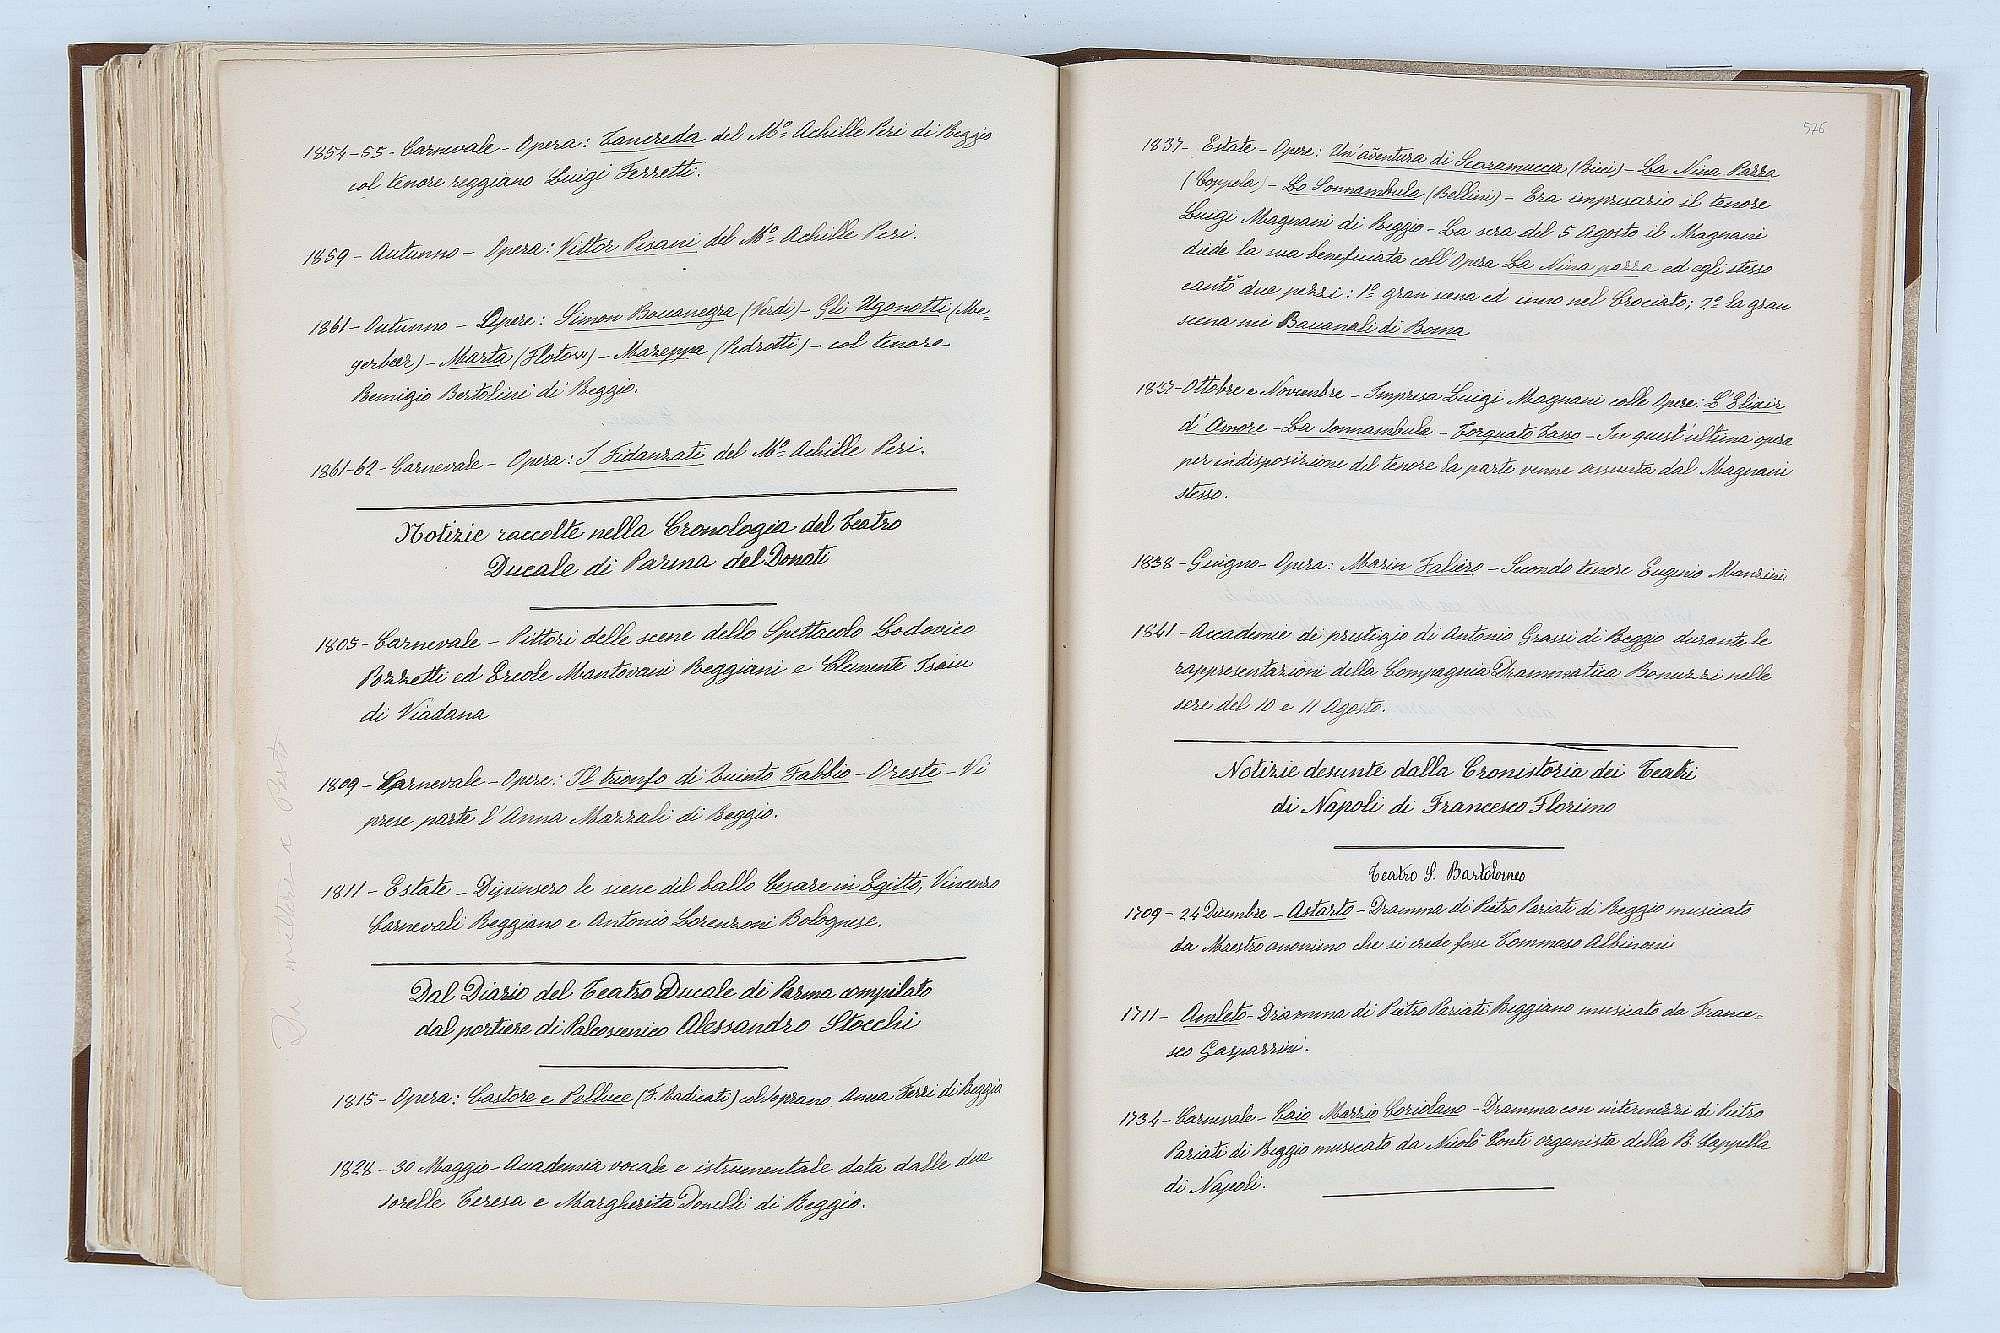 1854-55 - Carnevale - Opera: Tancreda del Mº Achille Peri di Reggio
col tenore reggiano Luigi Ferretti.
1859 - Autunno - Opera: Vittor Pisani del Mº Achille Peri.
1861 - Autunno - Opere: Simon Boccanegra (Verdi) - Gli Ugonotti (Me-
yerbeer) - Marta (Flotow) - Mazeppa (Pedrotti) - col tenore
Remigio Bertolini di Reggio.
1861-62 - Carnevale - Opera: I Fidanzati del Mº Achille Peri.
Notizie raccolte nella Cronologia del Teatro
Ducale di Parma del Donati
1805 - Carnevale - Pittori delle scene dello Spettacolo Lodovico
Pozzetti ed Ercole Mantovani Reggiani e Clemente Isaia
di Viadana
1809 - Carnevale - Opere: Il trionfo di Quinto Fabbio - Oreste - Vi
prese parte l'Anna Mazzali di Reggio.
1811 - Estate - Dipinsero le scene del ballo Cesare in Egitto, Vincenzo
Carnevali Reggiano e Antonio Lorenzoni Bolognese.
Dal Diario del Teatro Ducale di Parma compilato
dal portiere di Palcoscenico Alessandro Stocchi
1815 - Opera: Castore e Polluce (F. Radicati) col soprano Anna Ferri di Reggio
1828 - 30 Maggio - Accademia vocale e istrumentale data dalle due
sorelle Teresa e Margherita Donelli di Reggio.
576
1837 - Estate - Opere: Un'avventura di Scaramuccia (Ricci) - La Nina Pazza
(Coppola) - La Sonnambula (Bellini) - Era impresario il tenore
Luigi Magnani di Reggio - La sera del 5 Agosto il Magnani
diede la sua beneficiata coll'Opera La Nina pazza ed egli stesso
cantò due pezzi: 1º gran scena ed inno nel Crociato; 2º la gran
scena nei Baccanali di Roma
1837 - Ottobre e Novembre - Impresa Luigi Magnani colle Opere: L'Elixir
d'Amore - La Sonnambula - Torquato Tasso - In quest'ultima opera
per indisposizione del tenore la parte venne assunta dal Magnani
stesso.
1838 - Giugno - Opera: Marin Faliero - Secondo tenore Eugenio Manzini
1841 - Accademie di prestigio di Antonio Grassi di Reggio durante le
rappresentazioni della Compagnia Drammatica Bonuzzi nelle
sere del 10 e 11 Agosto.
Notizie desunte dalla Cronistoria dei Teatri
di Napoli di Francesco Florimo
Teatro S. Bartolomeo
1709 - 24 Dicembre - Astarto - Dramma di Pietro Pariati di Reggio musicato
da Maestro anonimo che si crede fosse Tommaso Albinoni
1711 - Amleto - Dramma di Pietro Pariati Reggiano musicato da France-
sco Gasparrini.
1734 - Carnevale - Caio Marzio Coriolano - Dramma con intermezzi di Pietro
Pariati di Reggio musicato da Nicolò Conti organista della R. Cappella
di Napoli.